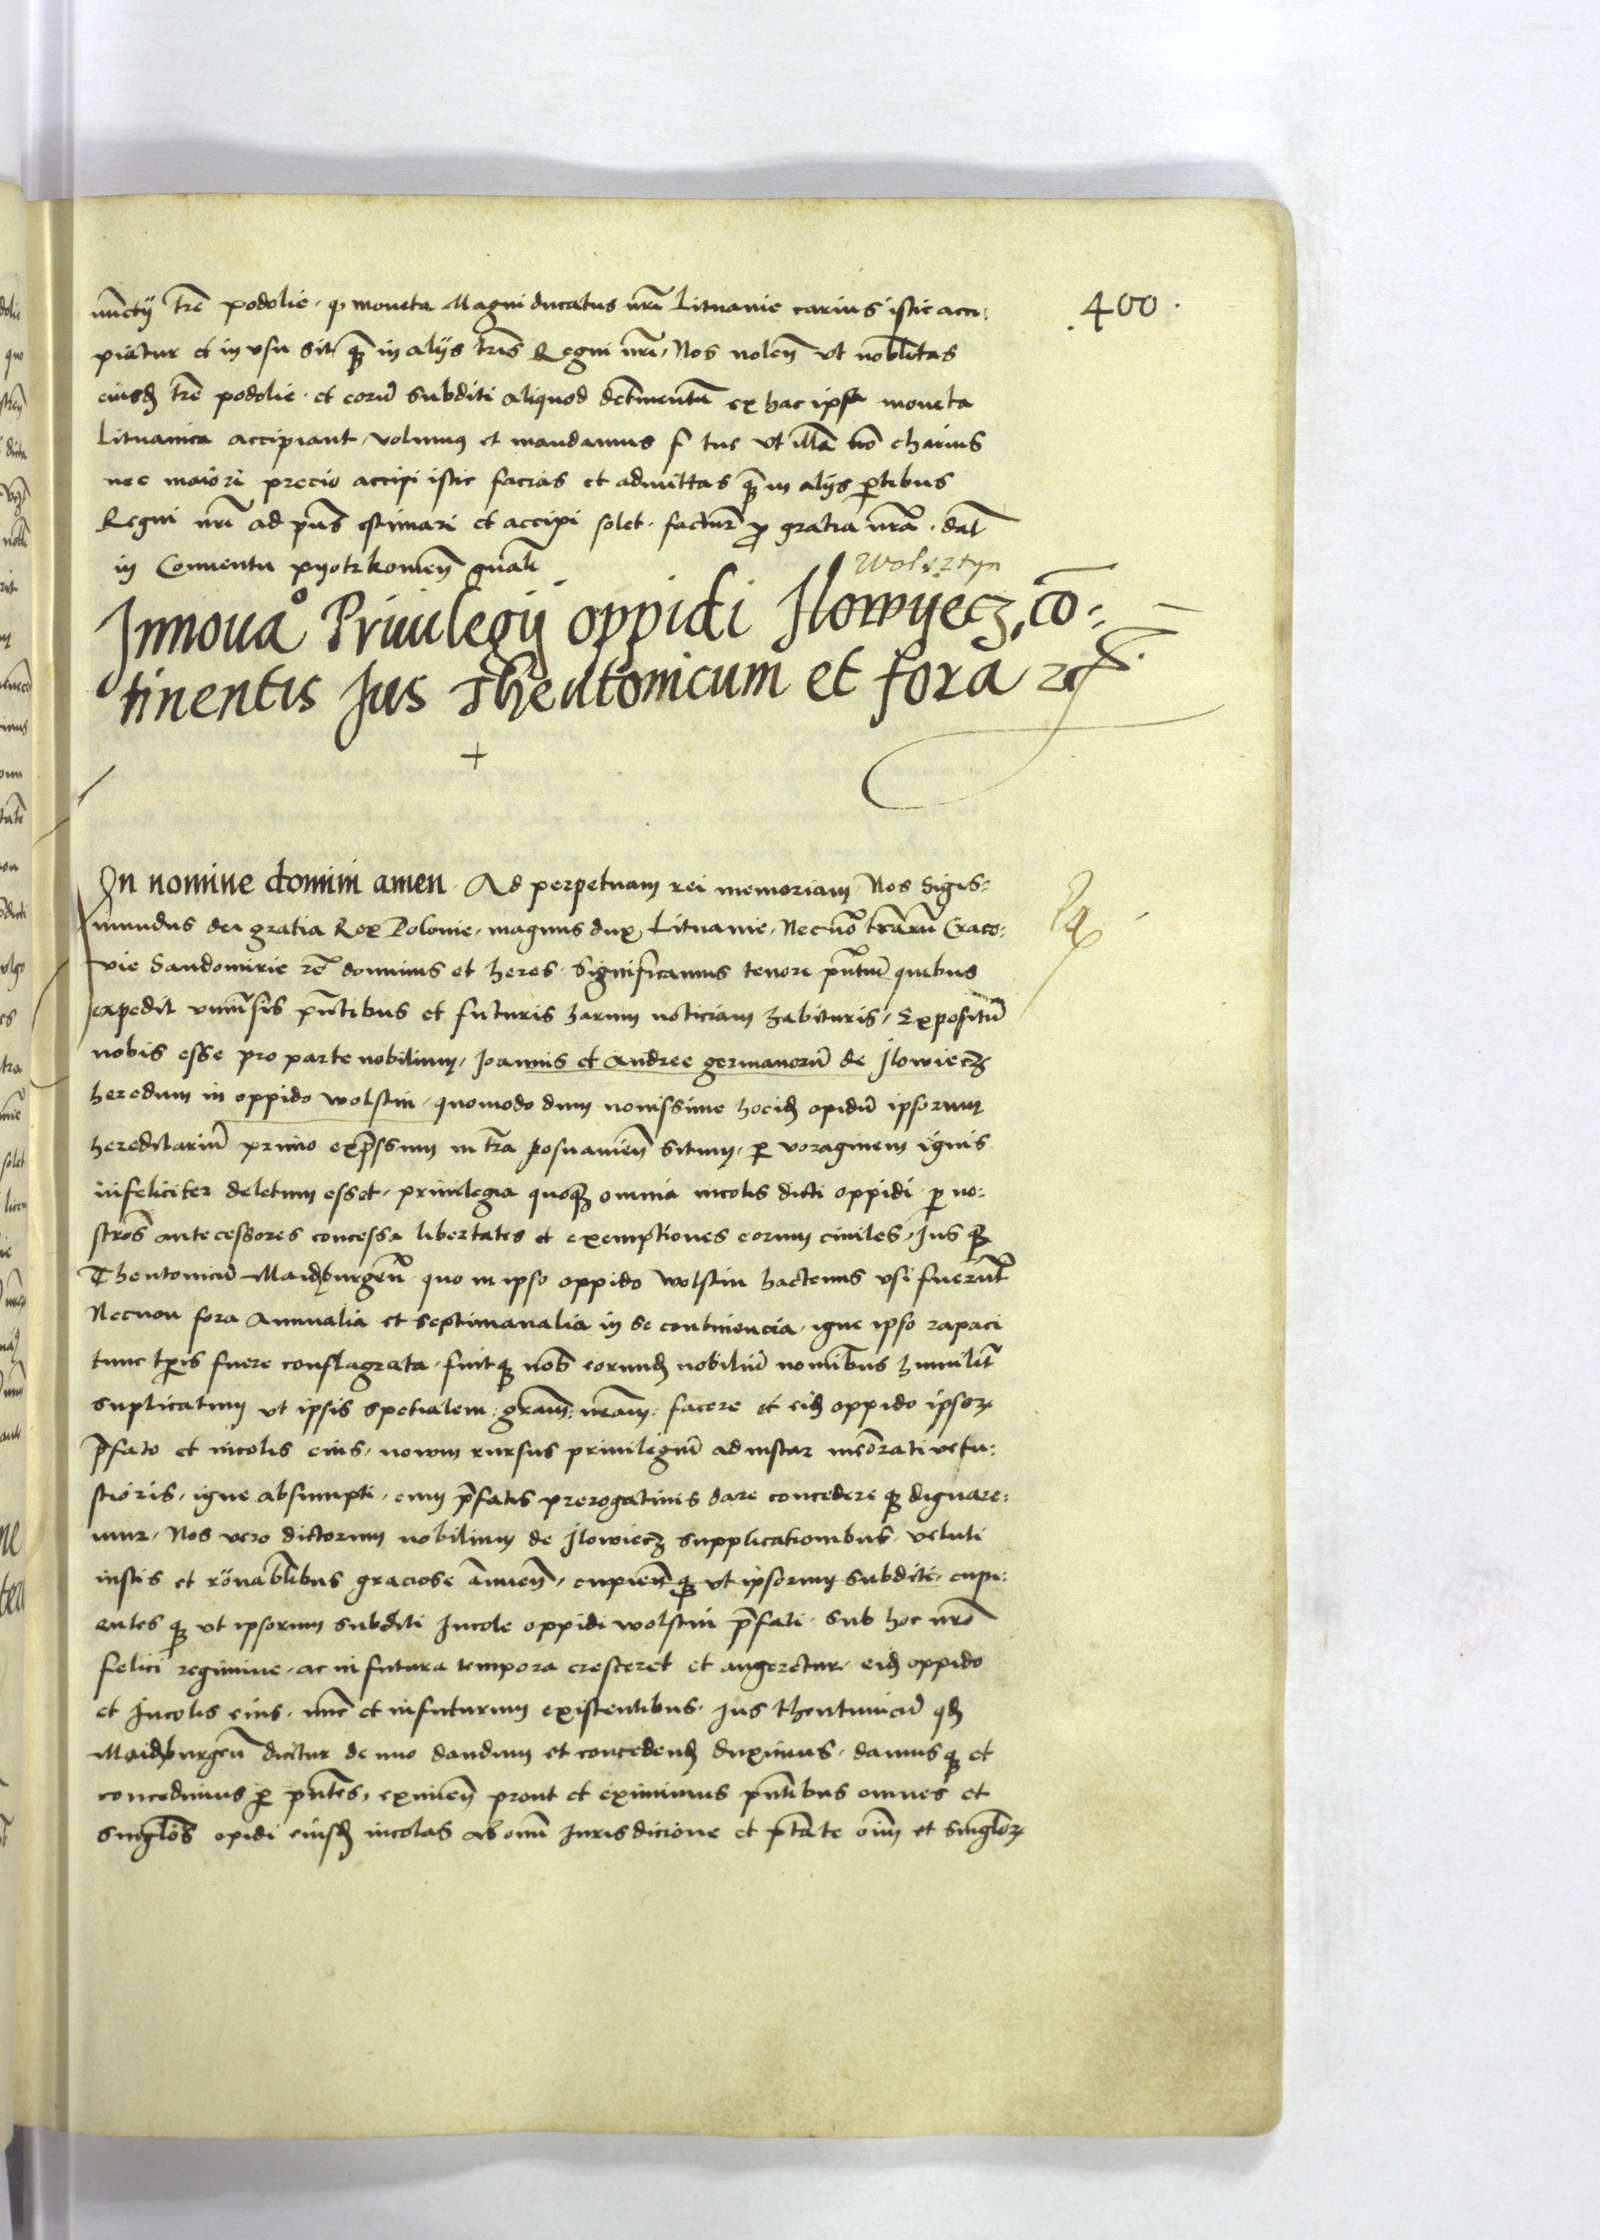 .400.
nunctij tre podolie. q moneta Magni ducatus nri Lituanie carius istic acci:
piatur et in vsu sit q in alijs tris Regni nri, Nos nolen vt nobilitas
eiusd tre podolie. et eoru subditi aliquod detrimentu ex hac ipsa moneta
Lituanica accipiant, volumus et mandamus f tue vt illa no charius
nec maiori precio accipi istic facias et admittas q in alijs ptibus
Regni nri ad pns estimari et accipi solet. factur p gratia nra. dat
in Conuentu pyotrkouien gnali
Wolsztyn
Innoua° Priuilegij oppidi Jlowyecz, co:
tinentis Jus Theutonicum et fora
+
In nomine domini amen. Ad perpetuam rei memoriam. Nos Sigis:
mundus dei gratia Rex Polonie, magnus dux Lituanie, Necno traru Craco:
vie Sandomirie rc dominus et heres. Significamus tenore pntiu quibus
expedit vniusis pntibus et futuris harum noticiam habituris, Expositu
nobis esse pro parte nobilium, Joannis et Andree germanoru de Jlowiecz
heredum in oppido wolstin, quomodo dum nouissime hocid opidu ipsorum
hereditariu primo expssum in tra posnanien situm, p voraginem ignis
infeliciter deletum esset, priuilegia quoq omnia incolis dicti oppidi p no:
stros antecessores concessa libertates et exemptiones eorum ciuiles, Jus q
Theutonicu Maidburgen quo in ipso oppido wolstin hactenus vsi fuerut
Necnon fora Annualia et septimanalia in se continencia, igne ipso rapaci
tunc tpis fuere conflagrata, fuitq nob eorund nobiliu nomibus humilit
suplicatum vt ipsis spetialem gram nram facere et eid oppido ipsor
pfato et incolis eius, nouum rursus priuilegiu ad instar meorati vetu:
stioris, igne absumpti, cum pfatis prerogatiuis dare concedere q dignare:
mur, Nos vero dictorum nobilium de Jlowiecz supplicationibus, veluti
iustis et ronabilibus graciose annuen, cupien q vt ipsorum subditi, cupi:
entes q vt ipsorum subditi Incole oppidi wolstin pfati. sub hoc nro
felici regimine, ac in futura tempora cresceret et augeretur, eid oppido
et Incolis eius, nunc et infuturum existentibus. Jus theutunicu qd
Maidburgen dicitur de nouo dandum et conceden duximus, damus q et
concedimus p pntes, eximen prout et eximimus pntibus omnes et
singlos opidi eiusd incolas ab omni Jurisdicione et ptate oim et singlor